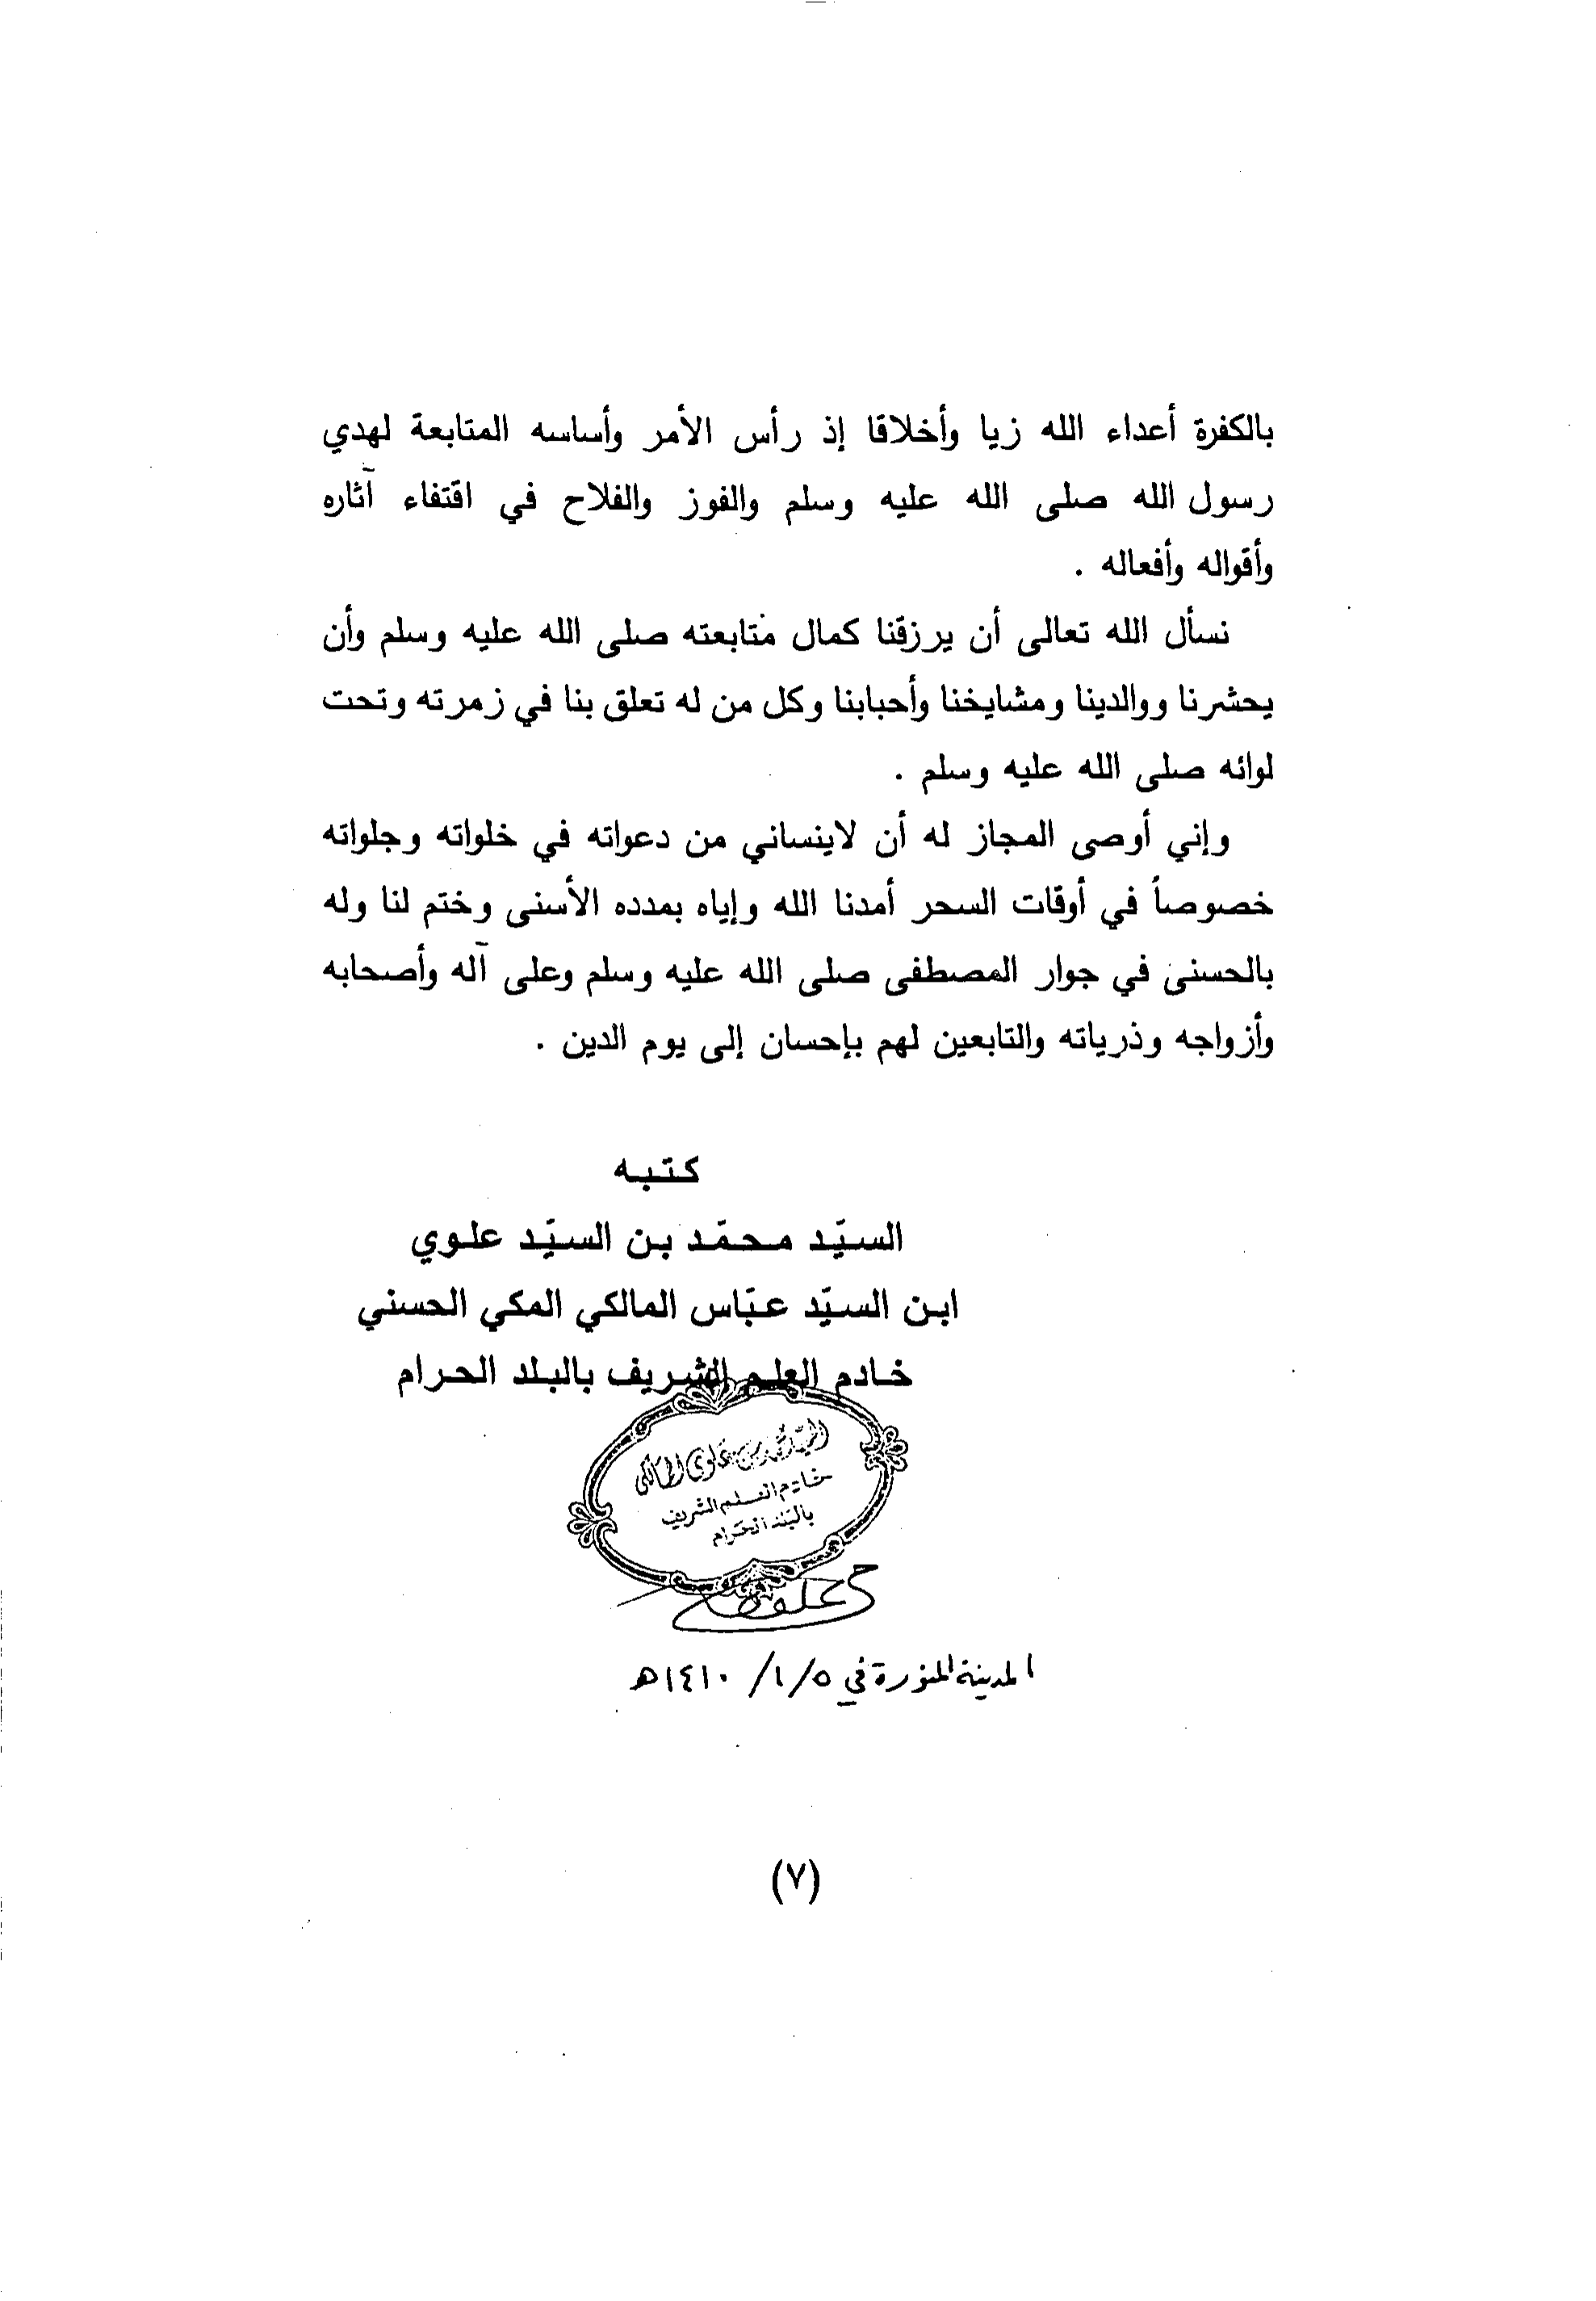 بالكفرة أعداء الله زيا وأخلاقا إذ رأس الأمر وأساسه المتابعة لهدي
رسول الله صلى الله عليه وسلم والفوز والفلاح في اقتفاء آثاره
وأقواله وأفعاله .
نسأل الله تعالى أن يرزقنا كمال متابعته صلى الله عليه وسلم وأن
يحشرنا ووالدينا ومشايخنا وأحبابنا وكل من له تعلق بنا في زمرته وتحت
لوائه صلى الله عليه وسلم .
وإني أوصى المجاز له أن لاينساني من دعواته في خلواته وجلواته
خصوصاً في أوقات السحر أمدنا الله وإياه بمدده الأسنى وختم لنا وله
بالحسنى في جوار المصطفى صلى الله عليه وسلم وعلى آله وأصحابه
وأزواجه وذرياته والتابعين لهم بإحسان إلى يوم الدين .
كتبه
السيّد محمّد بن السيّد علوي
ابن السيّد عبّاس المالكي المكي الحسني
خادم العلم الشريف بالبلد الحرام
السيد محمد بن علوي المالكي
خادم العلم الشريف
بالبلد الحرام
المدينة المنورة في ٥/١/١٤١٠هـ
(٧)